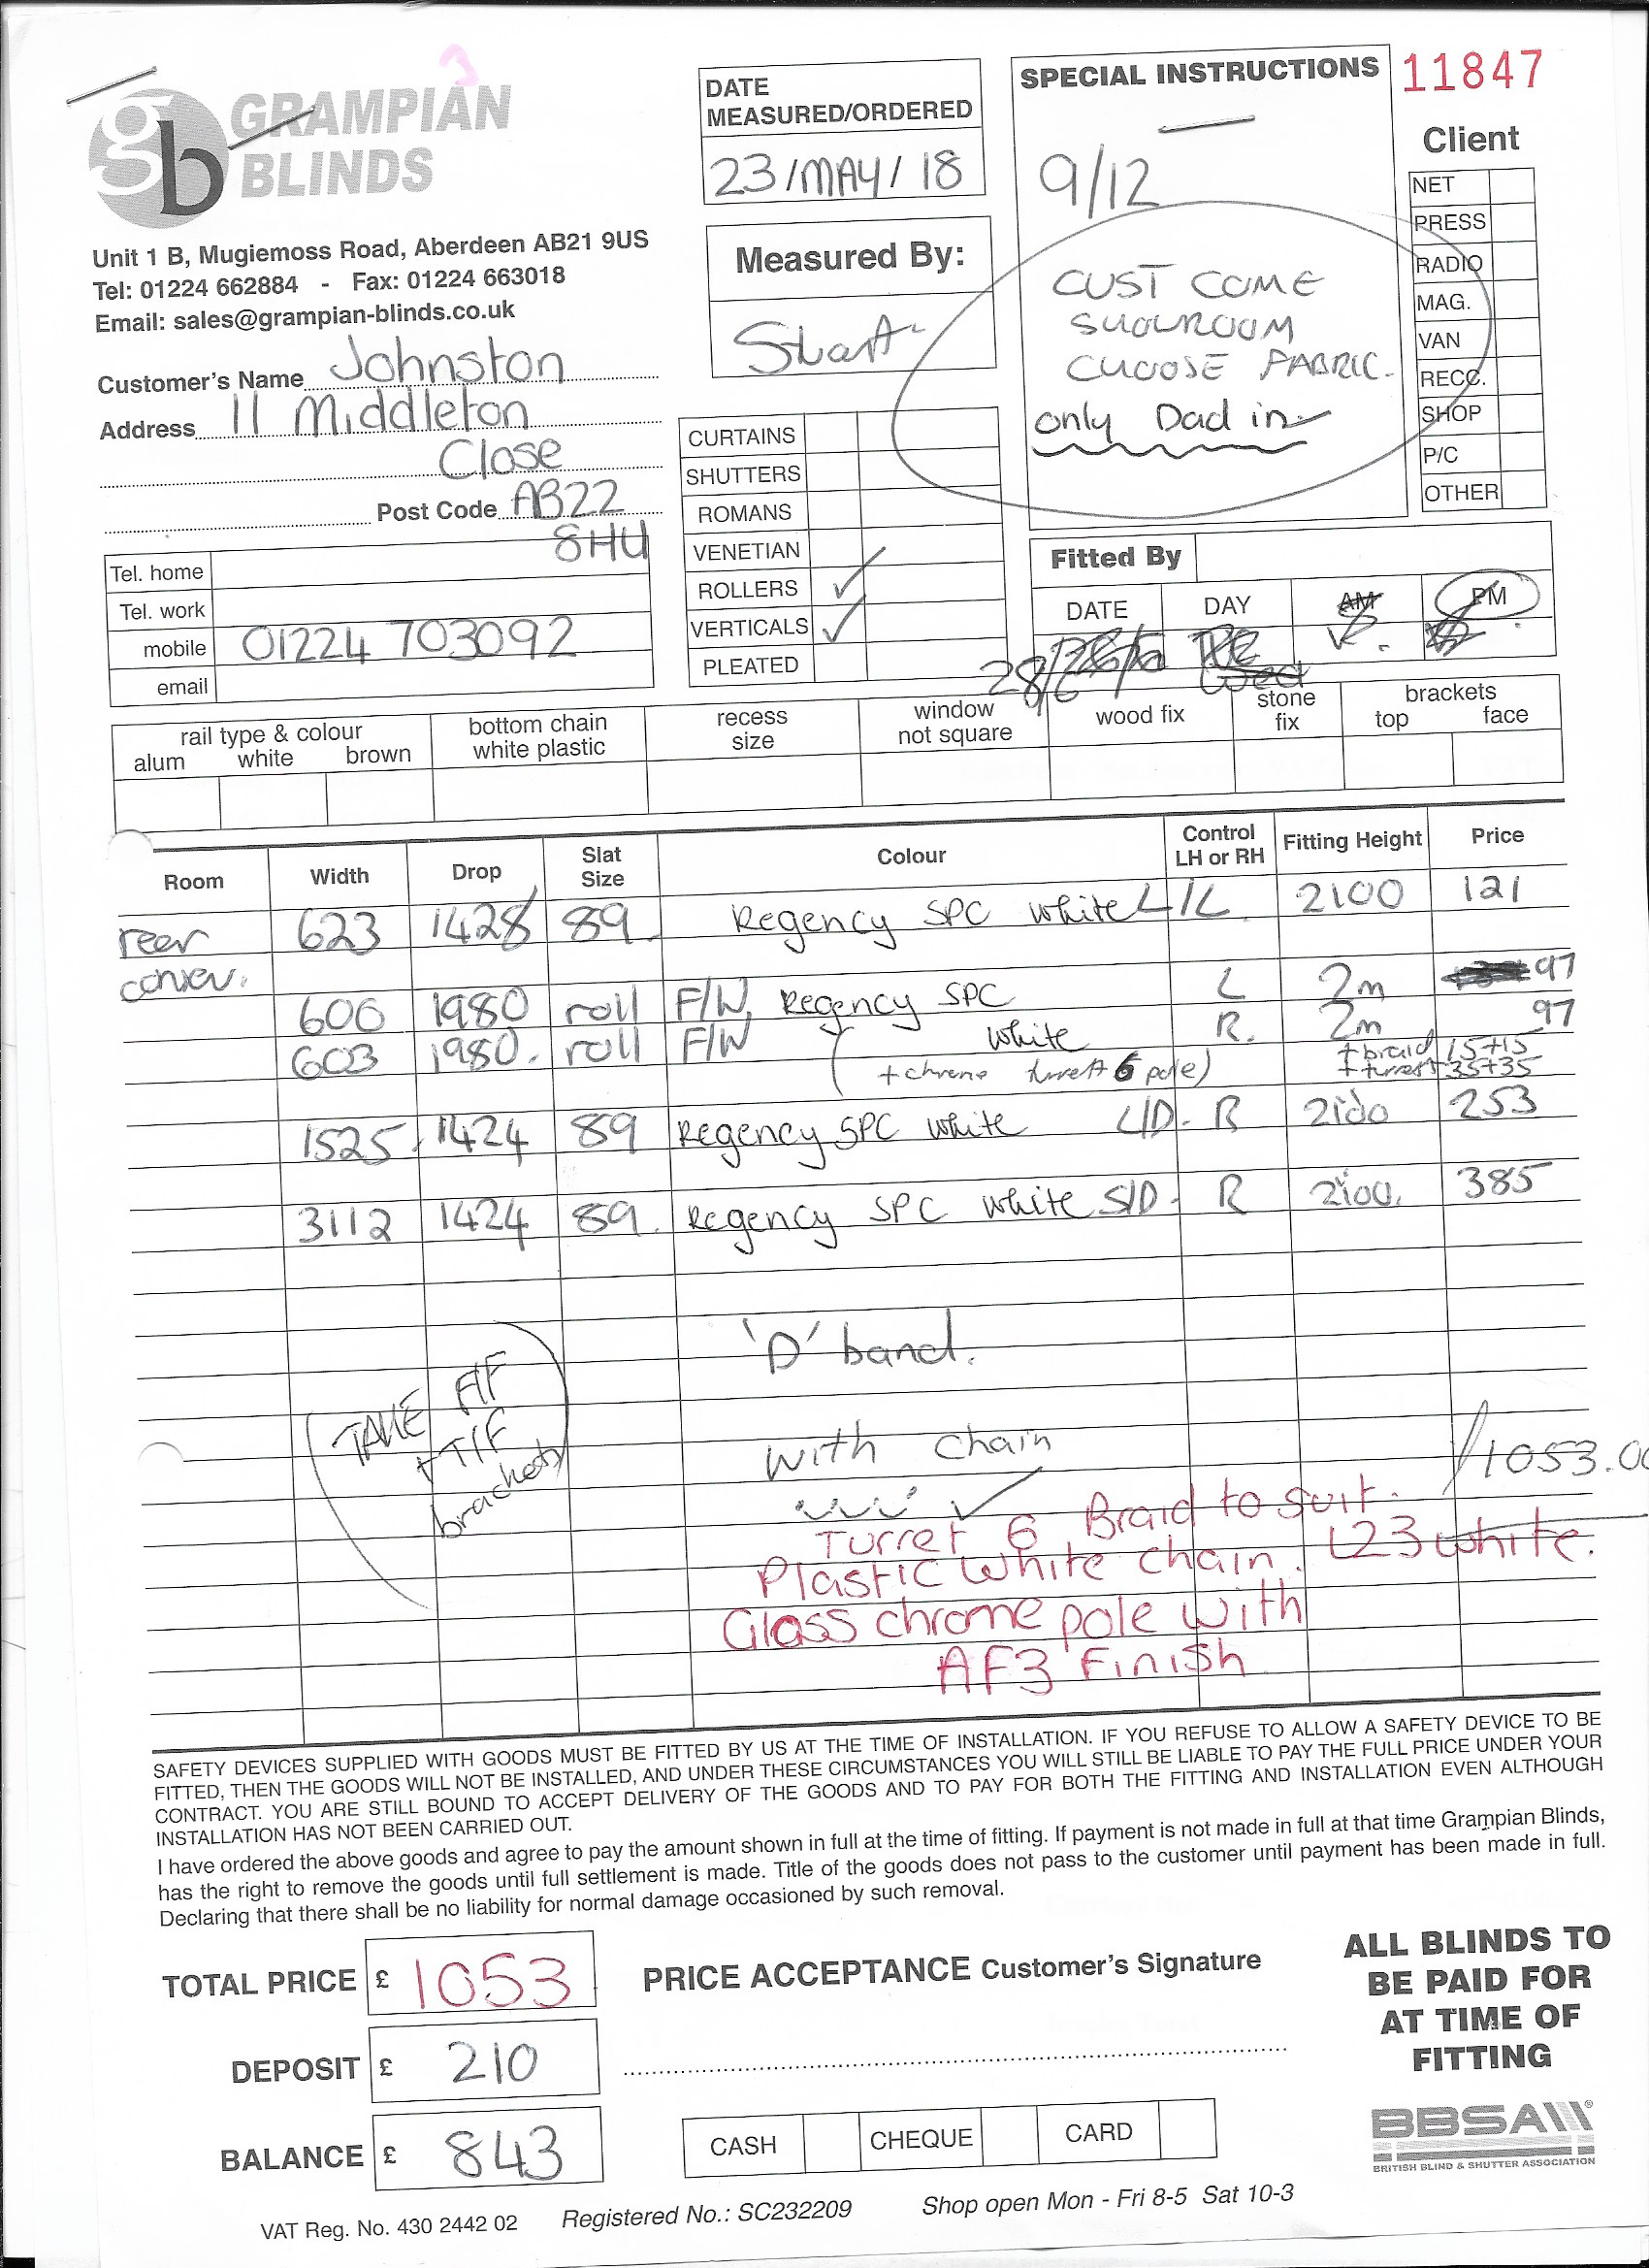 GRAMPIAN
BLINDS
gb
Unit 1 B, Mugiemoss Road, Aberdeen AB21 9US
Tel: 01224 662884 - Fax: 01224 663018
Email: sales@grampian-blinds.co.uk
Customer's Name Johnston
Address 11 Middleton
Close
Post Code AB22
8HU
Tel. home
Tel. work
mobile 01224 703092
email
DATE
MEASURED/ORDERED
23/MAY/18
Measured By:
Stuart
CURTAINS
SHUTTERS
ROMANS
VENETIAN
ROLLERS ✓
VERTICALS ✓
PLEATED
SPECIAL INSTRUCTIONS
9/12
CUST COME
SHOWROOM
CHOOSE FABRIC.
only Dad in
11847
Client
NET
PRESS
RADIO
MAG.
VAN
RECC.
SHOP
P/C
OTHER
Fitted By
DATE DAY AM PM
28/6 Wed
rail type & colour
alum white brown
bottom chain
white plastic
recess
size
window
not square
wood fix
stone
fix
brackets
top face
Room Width Drop Slat Size Colour Control LH or RH Fitting Height Price
rear 623 1428 89 Regency SPC white L/L 2100 121
conser.
606 1980 roll F/W Regency SPC L 2m 97
603 1980. roll F/W white R. 2m 97
(+chrome turrett 6 pole) +braid 15+15
+turret 35+35
1525 1424 89 Regency SPC white L/D. R 2100 253
3112 1424 89. Regency SPC white S/D. R 2100. 385
'D' band.
TAKE F/F
+ T/F
brackets
with chain
/1053.00
Turret 6 Braid to suit.
Plastic White chain. L23 white.
Glass chrome pole with
AF3 Finish
SAFETY DEVICES SUPPLIED WITH GOODS MUST BE FITTED BY US AT THE TIME OF INSTALLATION. IF YOU REFUSE TO ALLOW A SAFETY DEVICE TO BE
FITTED, THEN THE GOODS WILL NOT BE INSTALLED, AND UNDER THESE CIRCUMSTANCES YOU WILL STILL BE LIABLE TO PAY THE FULL PRICE UNDER YOUR
CONTRACT. YOU ARE STILL BOUND TO ACCEPT DELIVERY OF THE GOODS AND TO PAY FOR BOTH THE FITTING AND INSTALLATION EVEN ALTHOUGH
INSTALLATION HAS NOT BEEN CARRIED OUT.
I have ordered the above goods and agree to pay the amount shown in full at the time of fitting. If payment is not made in full at that time Grampian Blinds,
has the right to remove the goods until full settlement is made. Title of the goods does not pass to the customer until payment has been made in full.
Declaring that there shall be no liability for normal damage occasioned by such removal.
TOTAL PRICE £ 1053
DEPOSIT £ 210
BALANCE £ 843
PRICE ACCEPTANCE Customer's Signature
CASH CHEQUE CARD
ALL BLINDS TO
BE PAID FOR
AT TIME OF
FITTING
BBSA
BRITISH BLIND & SHUTTER ASSOCIATION
VAT Reg. No. 430 2442 02 Registered No.: SC232209 Shop open Mon - Fri 8-5 Sat 10-3